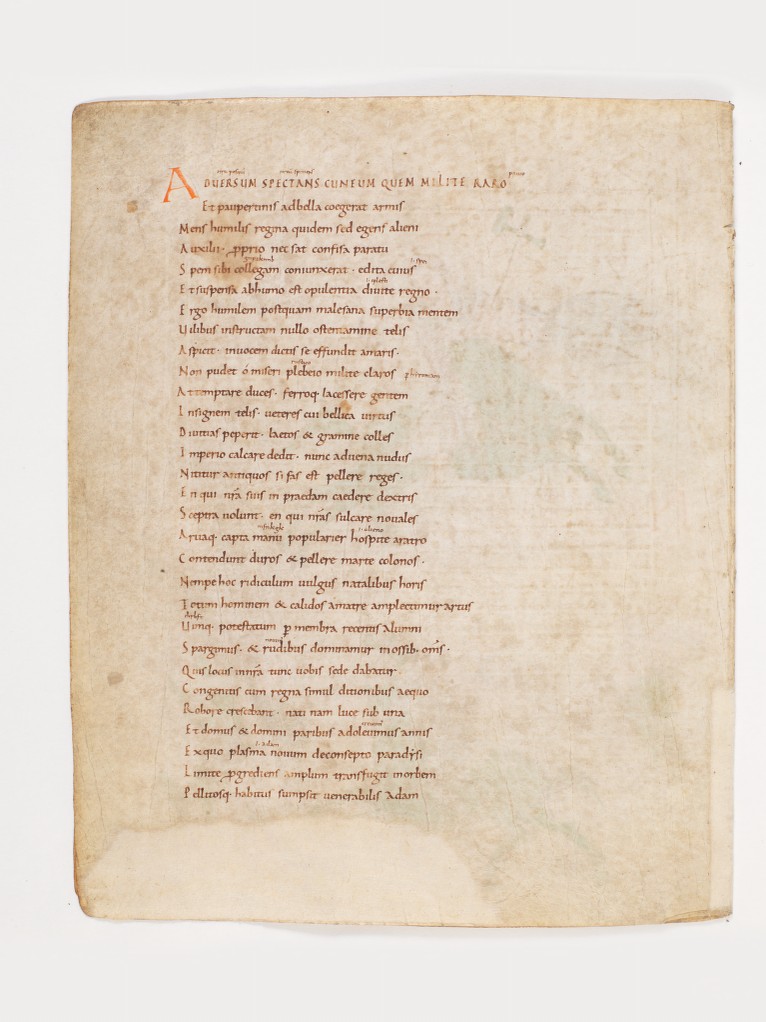 ADUERSUM SPECTANS CUNEUM QUEM MILITE RARO
Et paupertinis adbella coegerat armis
Mens humilis regina quidem sed egens alieni
Auxilii · ꝓprio nec sat confisa paratu
Spem sibi collegam coniunxerat · edita cuius
Et suspensa abhumo est opulentia diuite regno ·
Ergo humilem postquam malesana superbia mentem
Uilibus instructam nullo ostentamine telis
Aspicit · inuocem dictis se effundit amaris ·
Non pudet ó miseri plebeio milite claros
Attemptare duces · ferroq· lacessere gentem
Insignem telis · ueteres cui bellica uirtus
Diuitias peperit · laetos & gramine colles
Imperio calcare dedit · nunc aduena nudus
Nititur antiquos si fas est pellere reges ·
En qui nr̄a suis in praedam caedere dextris
Sceptra uolunt · en qui nr̄as sulcare nouales
Aruaq· capta manu popularier hospite aratro
Contendunt duros & pellere marte colonos ·
Nempe hoc ridiculum uulgus natalibus horis
Totum hominem & calidos amatre amplectimur artus
Uimq· potestatum ꝑ membra recentis alumni
Spargimus · & rudibus dominamur in ossib· om̄s ·
Quis locus innr̄a tunc uobis sede dabatur ·
Congenitis cum regna simul ditionibus aequo
Robore crescebant · nati nam luce sub una
Et domus & domini paribus adoleuimus annis
Exquo plasma nouum deconsepto paradẏsi
Limite ꝓgrediens amplum transfugit inorbem
Pellitosq· habitus sumpsit uenerabilis adam